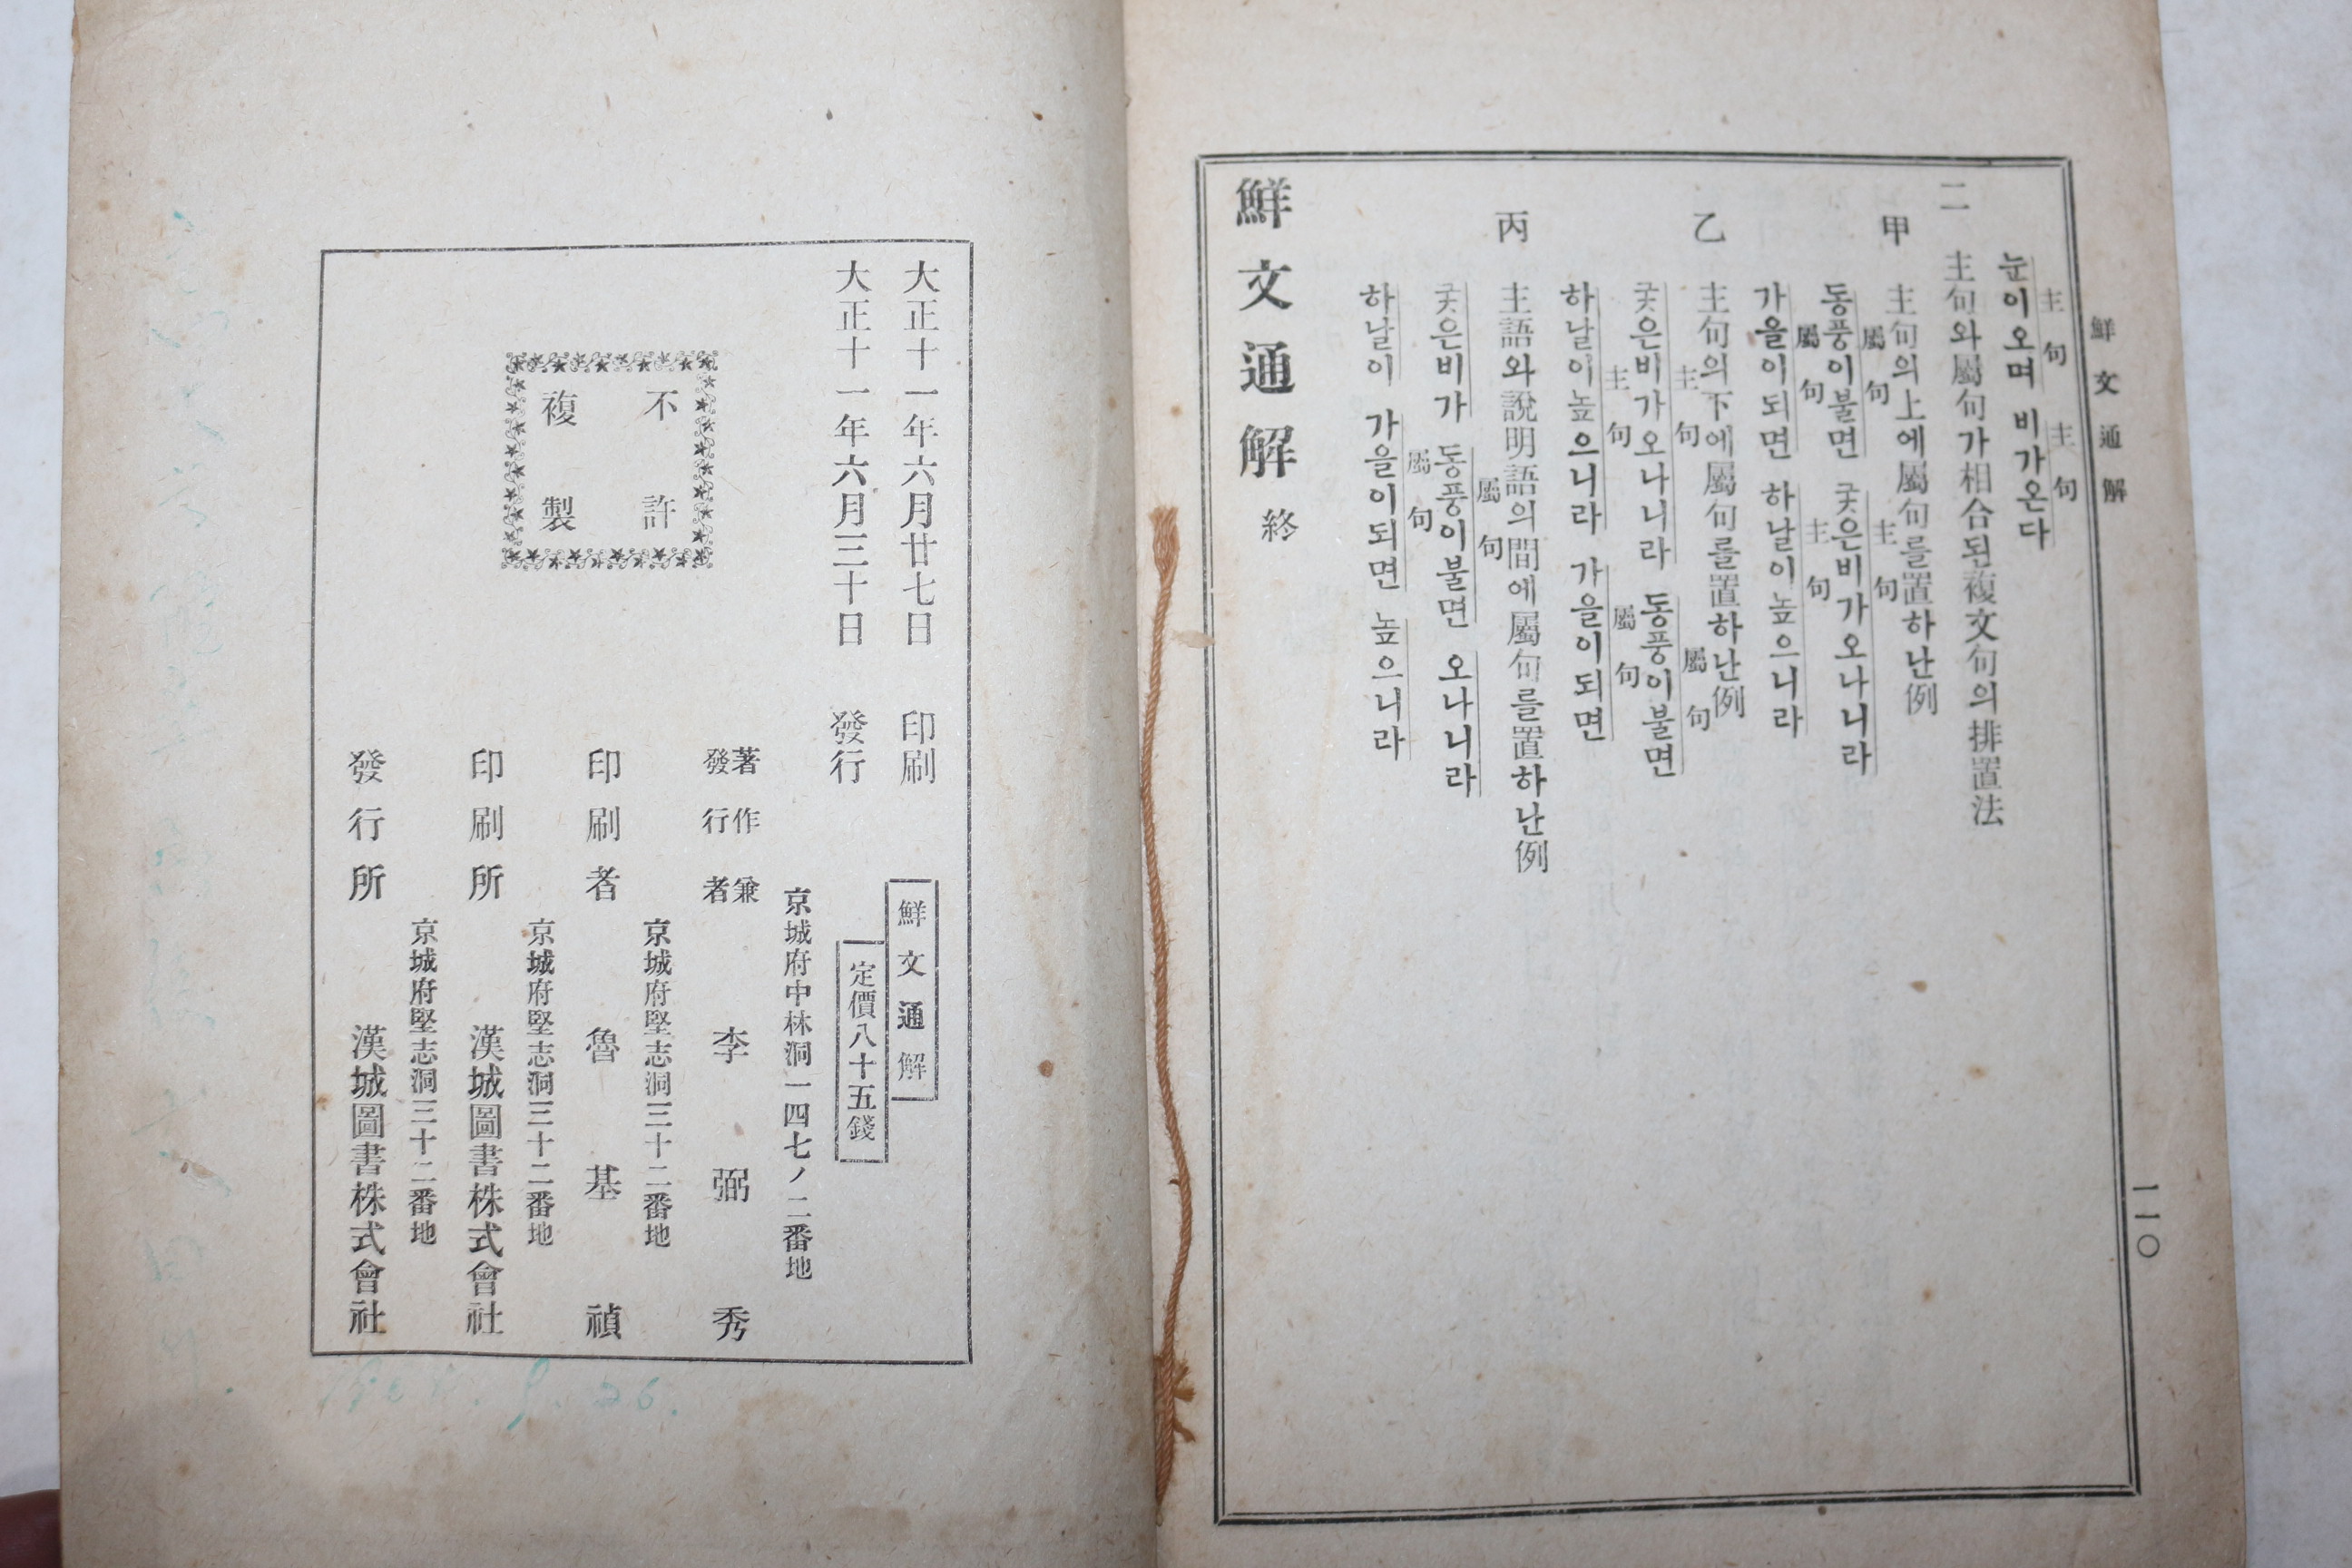 鮮文通解
一一〇
主句 主句
눈이오며 비가온다
二 主句와屬句가相合된複文句의排置法
甲 主句의上에屬句를置하난例
屬句 主句
동풍이불면 궂은비가오나니라
屬句 主句
가을이되면 하날이높으니라
乙 主句의下에屬句를置하난例
主句 屬句
궂은비가오나니라 동풍이불면
主句 屬句
하날이높으니라 가을이되면
丙 主語와說明語의間에屬句를置하난例
屬句
궂은비가 동풍이불면 오나니라
屬句
하날이 가을이되면 높으니라
鮮文通解 終
大正十一年六月廿七日 印刷
大正十一年六月三十日 發行
鮮文通解
定價八十五錢
不許
複製
京城府中林洞一四七ノ二番地
著作兼
發行者 李弼秀
京城府堅志洞三十二番地
印刷者 魯基禎
京城府堅志洞三十二番地
印刷所 漢城圖書株式會社
京城府堅志洞三十二番地
發行所 漢城圖書株式會社